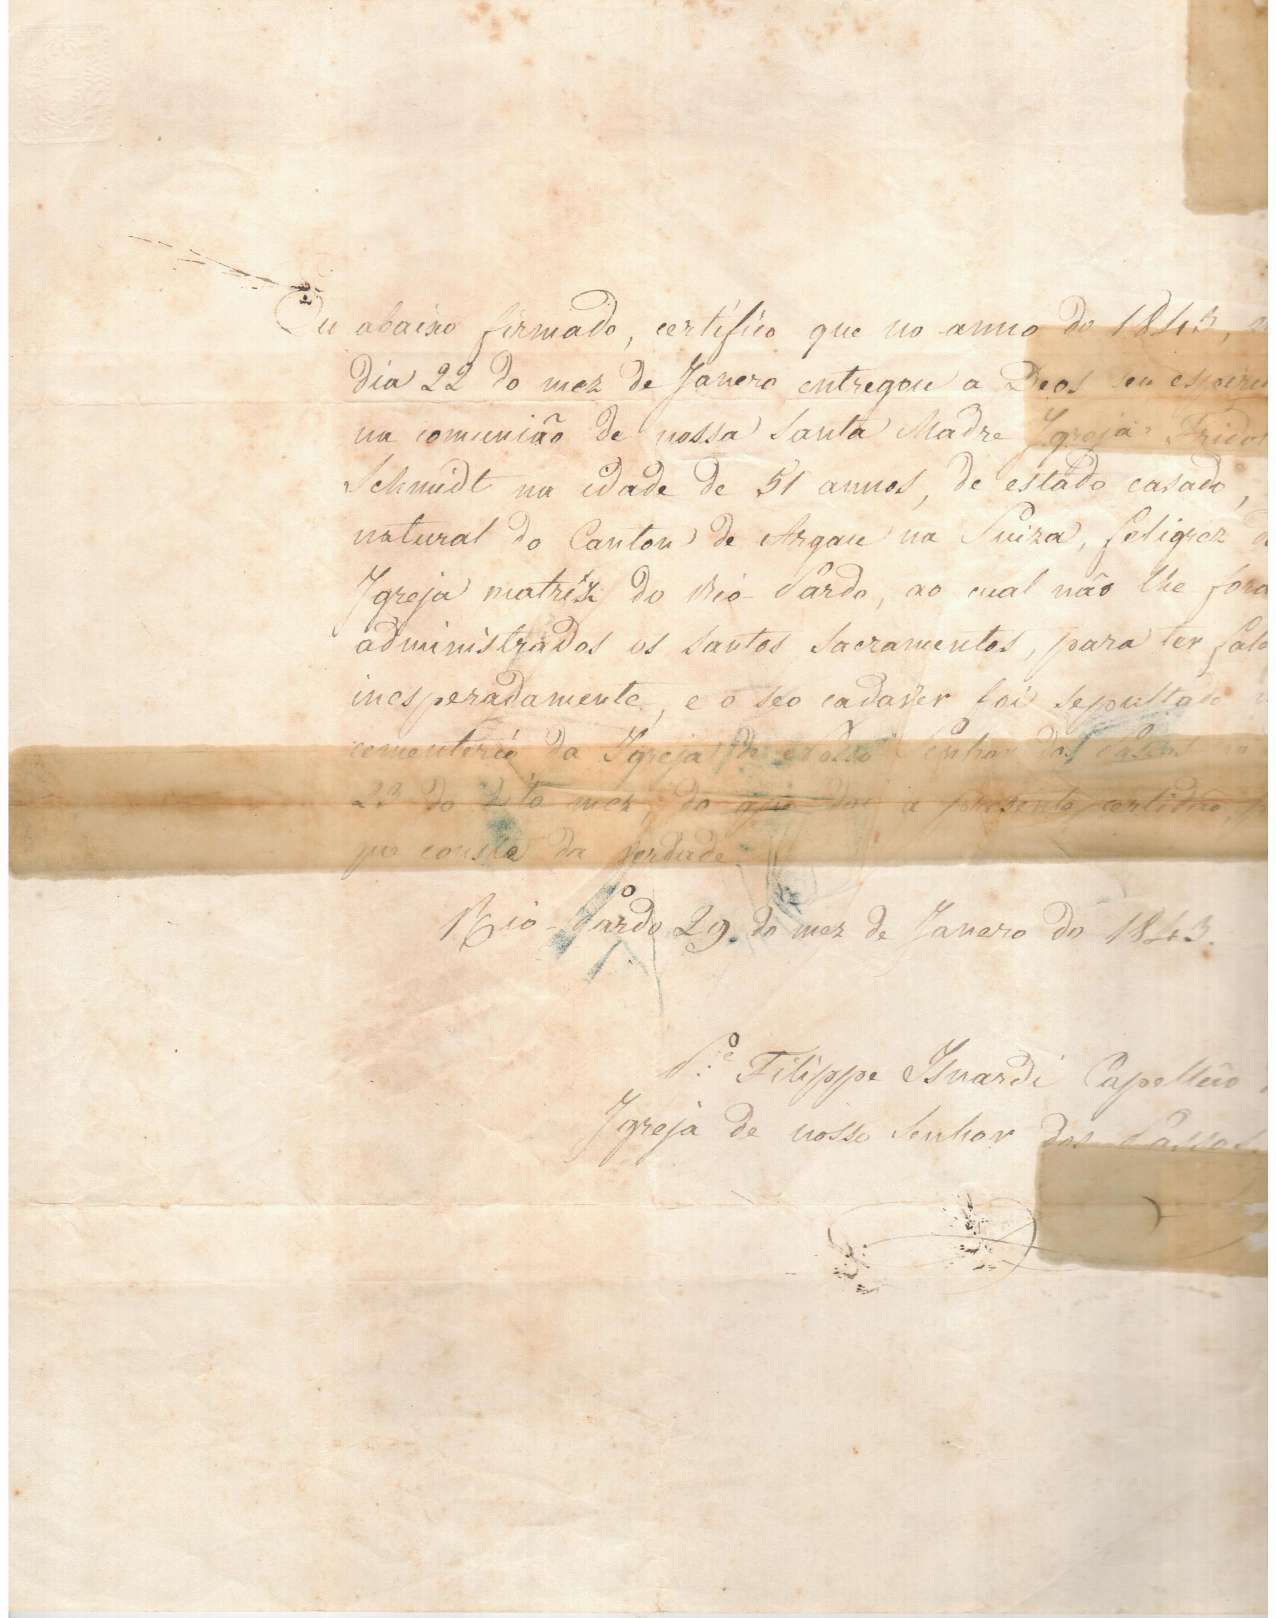 Eu abaixo firmado, certifico que no anno do 1843,
dia 22 do mez de Janero entregou a Deos seu espiri
na comunião de nossa Santa Madre Igreja Frido
Schmidt na idade de 51 annos, de estado casado,
natural do Canton de Argau na Suiza, feligrez d
Igreja matriz do Rio Pardo, ao cual não lhe fora
administrados os santos sacramentos, para ter fale
inesperadamente, e o seo cadaver foi sepultado
cementerio da Igreja de Nosso Senhor dos Passos
23 do dito mez, do que doi a presente certidão, p
que conste da verdade.
Rio-Pardo 29 do mez de Janero do 1843.
P.e Filippe Isnardi Capellão
Igreja de nosso Senhor dos Passos.